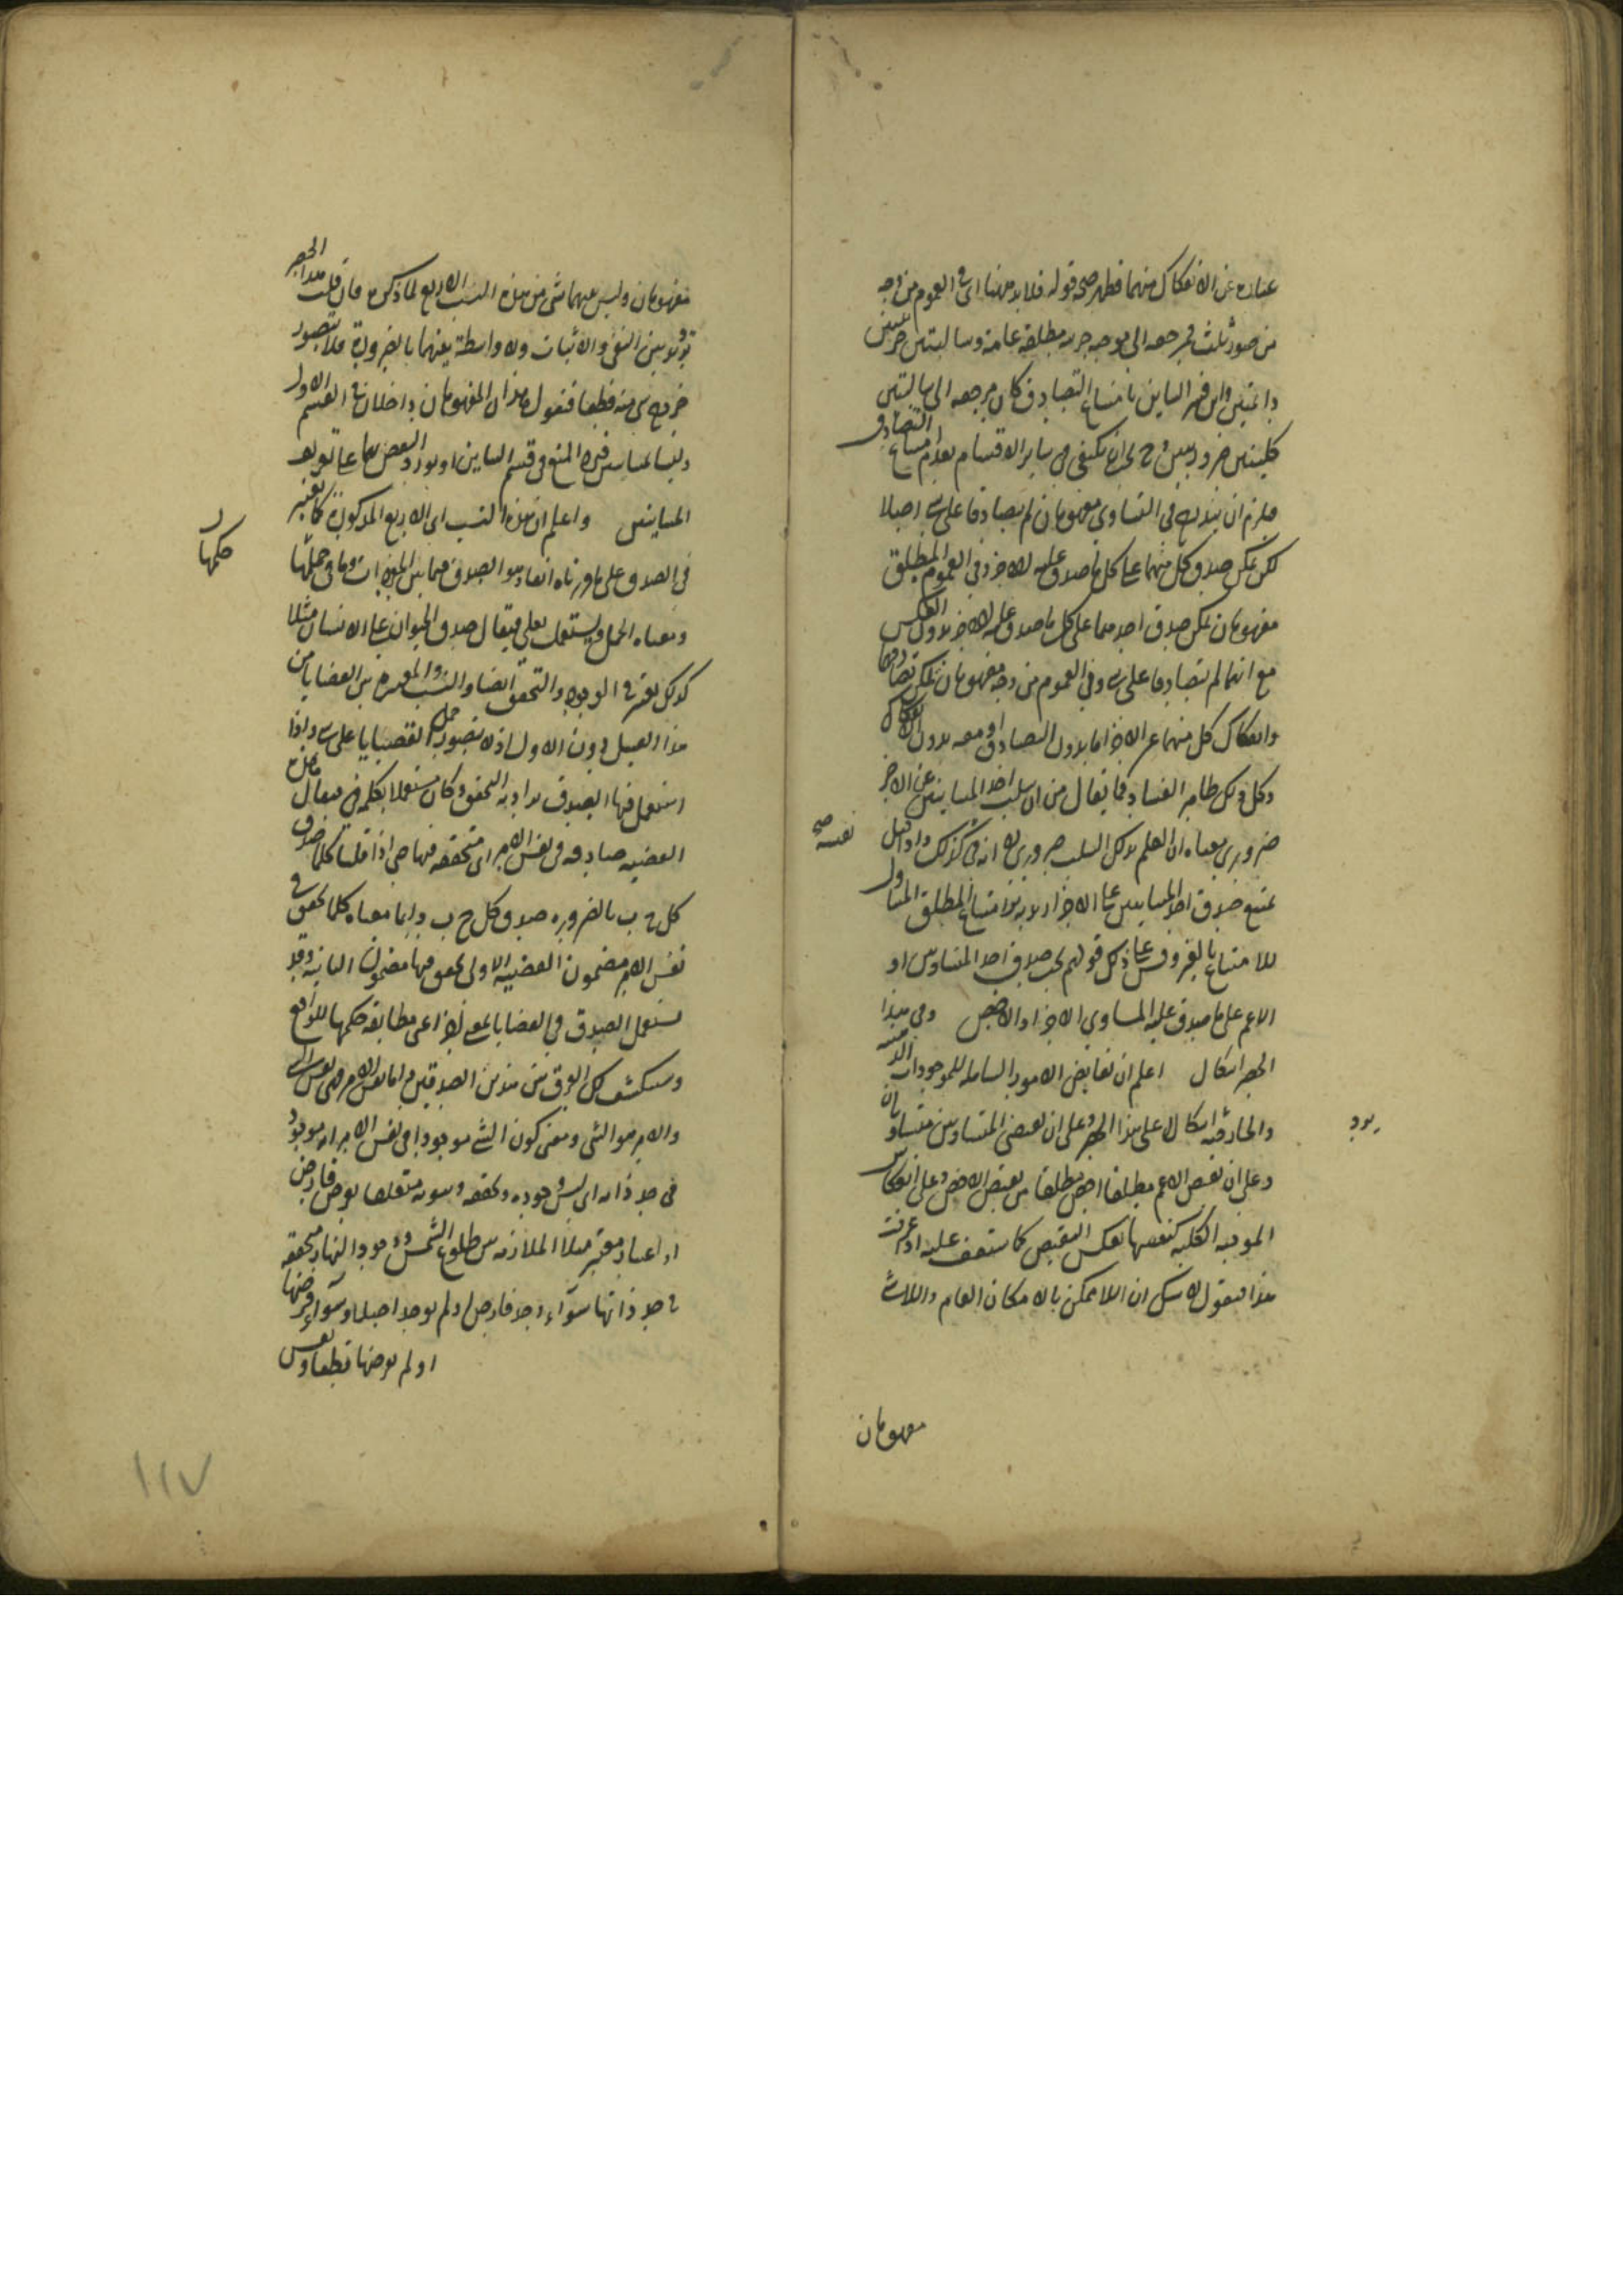 عبارة عن الانفكاك منهما فظهر صحة قوله فلا بد هنا اى فى العموم من وجه
من صور ثلث فمرجعه الى موجبة جزئية مطلقة عامة وسالبتين جزئيتين
دائمتين وان فسر التباين بامتناع التصادق كان مرجعه الى سالبتين
كليتين ضروريتين وح يجب ان يكتفى فى ساير الاقسام بعدم امتناع التصادق
فلزم ان يندرج فى التساوى مفهومان لم يتصادقا على شى اصلا
لكن يمكن صدق كل منهما على كل ما صدق عليه الاخر وفى العموم المطلق
مفهومان يمكن صدق احدهما على كل ما صدق عليه الاخر بدون العكس
مع انهما لم يتصادقا على شى وفى العموم من وجه مفهومان يمكن تصادقهما
وانفكاك كل منهما عن الاخر اما بدون التصادق او معه بدون الانفكاك
وكل ذلك ظاهر الفساد فما يقال من ان سلب احد المتباينين عن الاخر
ضرورى معناه ان العلم بذلك السلب ضرورى لا انه فى نفسه كذلك واذا قيل
نفسه صح
يمتنع صدق احد المتباينين على الاخر اريد به امتناع المطلق المتناول
للامتناع بالغير وقس على ذلك قولهم يجب صدق احد المتساويين او
الاعم على ما صدق عليه المساوى الاخر او الاخص وفى هذا
الحصر اشكال اعلم ان نقايض الامور الشاملة للموجودات الذهنية
والخارجية اشكال على هذا الحصر وعلى ان نقيضى المتساويين متساويان
يرد
وعلى ان نقيض الاعم مطلقا اخص مطلقا من نقيض الاخص وعلى انعكاس
الموجبة الكلية كنفسها بعكس النقيض كما ستقف عليه اذا عرفت
هذا فنقول لا شك ان اللاممكن بالامكان العام واللاشى
مفهومان
مفهومان وليس بينهما شى من هذه النسب الاربع لما ذكره فان قلت هذا الحصر
ترديد بين النفى والاثبات ولا واسطة بينهما بالضرورة فلا يتصور
خروج شى منه قطعا فنقول هذان المفهومان داخلان فى القسم الاول
وليسا بمتباينين فيرد المنع فى قسم التباين او يورد النقض بهما على تعريف
المتباينين واعلم ان هذه النسب اى الاربع المذكورة كما تعتبر
فى الصدق على ما قررناه انفا وهو الصدق فيما بين المفردات وما فى حكمها
حكمها
ومعناه الحمل ويستعمل بعلى فيقال صدق الحيوان على الانسان مثلا
كذلك تعتبر فى الوجود والتحقق ايضا والنسب المعتبرة بين القضايا من
هذا القبيل دون الاول اذ لا يتصور حمل القضايا على شى واذا
استعمل فيها الصدق يراد به التحقق وكان مستعملا بكلمة فى فيقال هذه
القضية صادقة فى نفس الامر اى متحققة فيها حتى اذا قلنا كلما صدق
كل ج ب بالضرورة صدق كل ج ب دائما معناه كلما تحقق فى
نفس الامر مضمون القضية الاولى تحقق فيها مضمون الثانية وقد
يستعمل الصدق فى القضايا بمعنى اخر اعنى مطابقة حكمها للواقع
وسينكشف لك الفرق بين هذين الصدقين واما نفس الامر فهى نفس الشى
والامر هو الشى ومعنى كون الشى موجودا فى نفس الامر انه موجود
فى حد ذاته اى ليس وجوده وتحققه وثبوته متعلقا بفرض فارض
او اعتبار معتبر مثلا الملازمة بين طلوع الشمس ووجود النهار متحققة
فى حد ذاتها سواء وجد فارض او لم يوجد اصلا وسواء فرضها
او لم يفرضها قطعا ونفس
١١٧